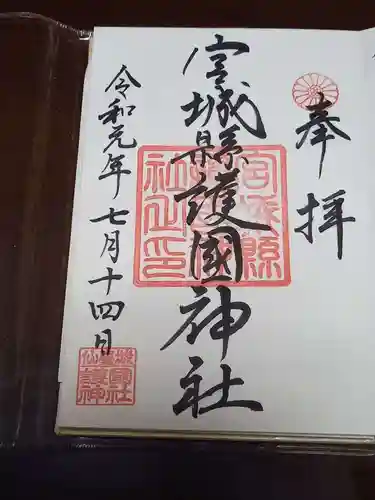 奉拝
宮城縣護國神社
令和元年七月十四日
宮城縣
護國神
社之印